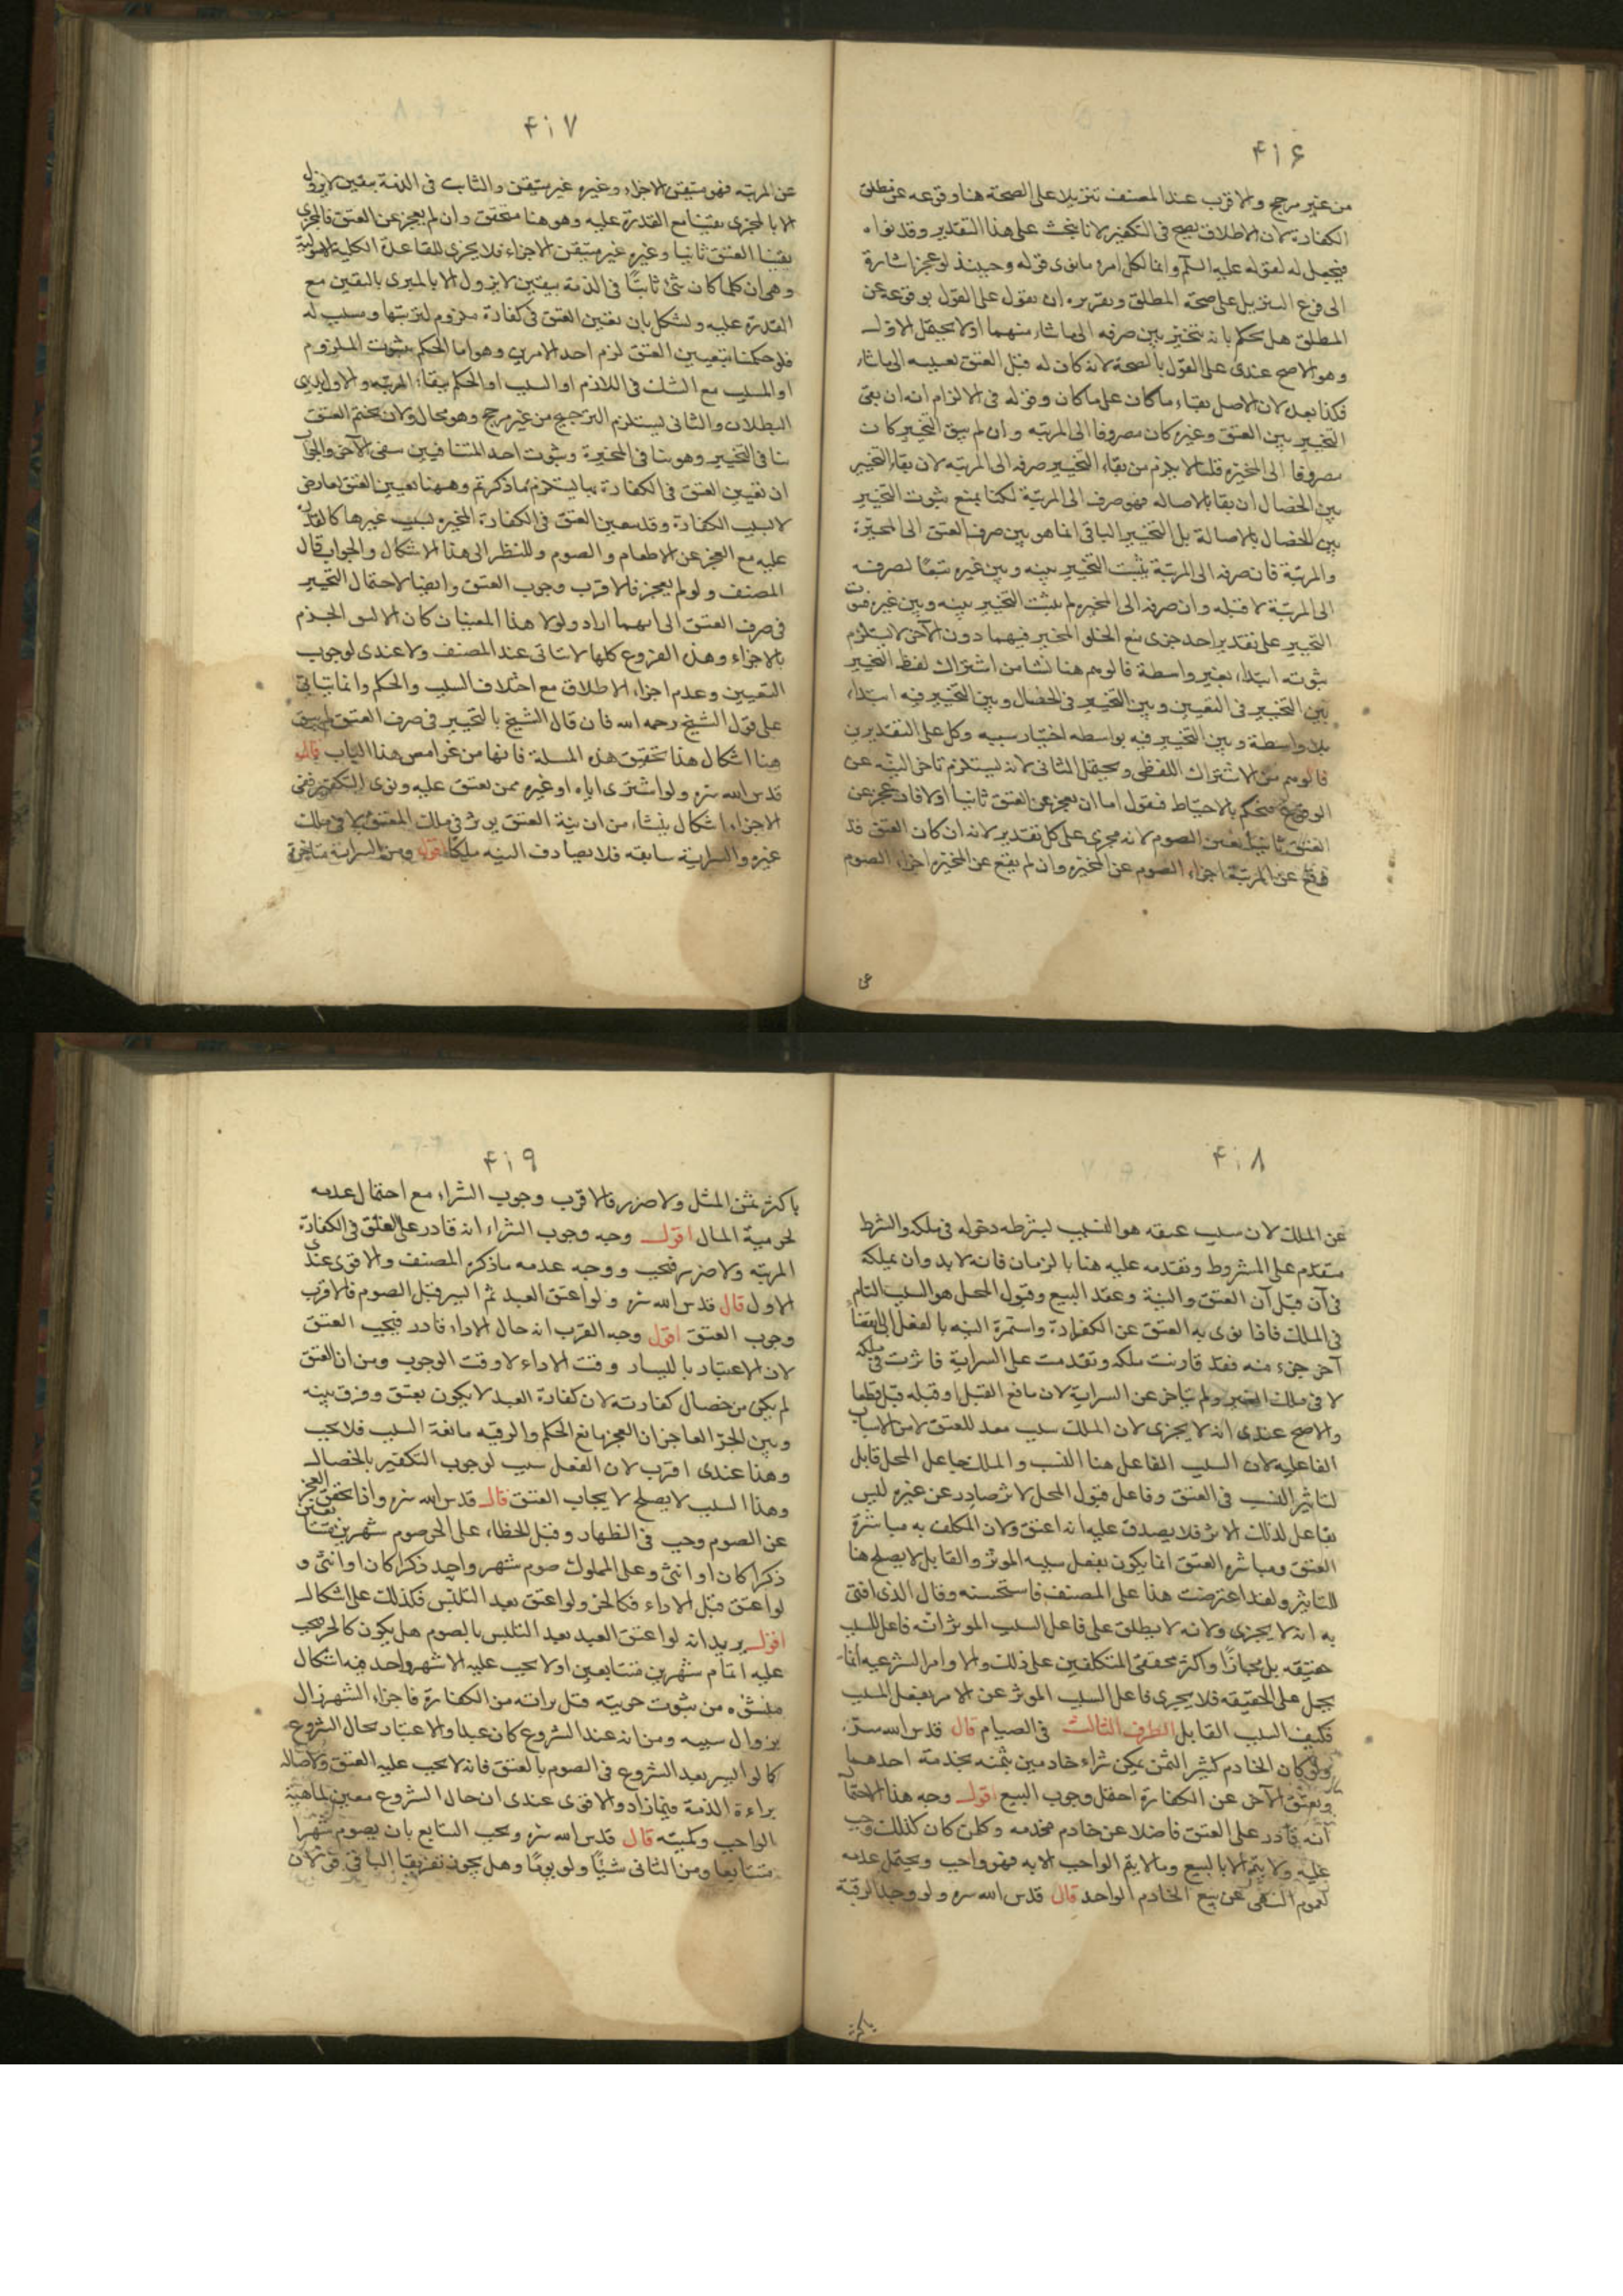 ۴۱۶
من غير مرجح والاقرب عند المصنف تنزيلا على الصحة هنا وقوعه عن مطلق
الكفارة لان الاطلاق يصح في التكفير لانا نبحث على هذا التقدير وقد نواه
فيحصل له لقوله عليه السلم وانما لكل امرء ما نوى قوله وحينئذ لو عجز اشارة
الى فرع التنزيل على صحة المطلق وتقريره ان نقول على القول بوقوعه عن
المطلق هل يحكم بانه يتخير بين صرفه الى ما شاء منهما او لا يحتمل الاول
وهو الاصح عندى على القول بالصحة لانه كان له قبل العتق تعيينه الى ما شاء
فكذا بعد لان الاصل بقاء ما كان على ما كان وقوله في الالزام انه ان بقى
التخيير بين العتق وغيره كان مصروفا الى المرتبه وان لم يبق التخيير كان
مصروفا الى المخيرة قلنا لا يلزم من بقاء التخيير صرفه الى المرتبه لان بقاء التخيير
بين الخصال ان بقا بالاصاله فهو صرف الى المرتبة لكنا نمنع ثبوت التخيير
بين الخصال بالاصالة بل التخيير الباقى انما هو بين صرف العتق الى المخيرة
والمرتبة فان صرفه الى المرتبة يثبت التخيير بينه وبين غيره تبعا لصرفه
الى المرتبة لا قبله وان صرفه الى المخيره لم يثبت التخيير بينه وبين غيره فثبوت
التخيير على تقدير احد جزى منع الخلو المخير فيهما دون الآخر لا يستلزم
ثبوته ابتداء بغير واسطة فالوهم هنا نشا من اشتراك لفظ التخيير
بين التخيير في التعيين وبين التخيير في الخصال وبين التخيير فيه ابتداء
بلا واسطة وبين التخيير فيه بواسطه اختيار سببه وكل على التقديرين
فالوهم من الاشتراك اللفظى ويحتمل الثانى لانه يستلزم تاخر النية عن
الوقوع فيحكم بالاحتياط فنقول اما ان يعجز عن العتق ثانيا او لا فان عجز عن
العتق ثانيا تعين الصوم لانه مجزى على كل تقدير لانه ان كان العتق قد
وقع عن المرتبة اجزاء الصوم عن المخيره وان لم يقع عن المخيره اجزاء الصوم
۴۱۷
عن المرتبه فهو متيقن الاجزاء وغيره غير متيقن والثابت في الذمة بيقين لا يزول
الا بالمجزى يقينا مع القدرة عليه وهو هنا متحقق وان لم يعجز عن العتق فالمجزى
يقينا العتق ثانيا وغيره غير متيقن الاجزاء فلا يجزى للقاعدة الكلية الاصولية
وهى ان كلما كان شئ ثابتا في الذمة بيقين لا يزول الا بالمبرى باليقين مع
القدرة عليه ويشكل بان تعين العتق في كفارة ملزوم لترتبها ومسبب له
فلو حكمنا بتعيين العتق لزم احد الامرين وهو اما الحكم بثبوت الملزوم
او المسبب مع الشك في اللازم او السبب او الحكم ببقاء المرتبه والاول بديهى
البطلان والثانى يستلزم الترجيح من غير مرجح وهو محال ولان تحتم العتق
ينافى التخيير وهو ينافى المخيرة وثبوت احد المتنافيين ينفى الآخر والجواب
ان تعيين العتق في الكفارة بها يستلزم ما ذكرتم وههنا تعيين العتق لعارض
لا بسبب الكفارة وقد يتعين العتق في الكفارة المخيره بسبب غيرها كالقدرة
عليه مع العجز عن الاطعام والصوم وللنظر الى هذا الاشكال والجواب قال
المصنف ولو لم يعجز فالاقرب وجوب العتق وايضا لاحتمال التخيير
في صرف العتق الى ايهما اراد ولولا هذا المعنيان كان الانسب الجزم
بالاجزاء وهذه الفروع كلها لا تتاتى عند المصنف ولا عندى لوجوب
التعيين وعدم اجزاء الاطلاق مع اختلاف السبب والحكم وانما يتاتى
على قول الشيخ رحمه الله فان قال الشيخ بالتخيير في صرف العتق لم يبق
هنا اشكال هذا تحقيق هذه المسلة فانها من غوامص هذا الباب قال
قدس الله سره ولو اشترى اباه او غيره ممن يعتق عليه ونوى التكفير ففى
الاجزاء اشكال ينشاء من ان نية العتق يوثر في ملك المعتق لا في ملك
غيره والسراية سابقه فلا يصادف النيه ملكا اقول ومن السراية متاخرة
۴۱۸
عن الملك لان سبب عتقه هو النسب بشرطه دخوله في ملكه والشرط
متقدم على المشروط وتقدمه عليه هنا بالزمان فانه لا بد وان يملكه
في آن قبل آن العتق والنية وعقد البيع وقبول المحل هو السبب التام
في الملك فاذا نوى به العتق عن الكفارة واستمرة النيه بالفعل الى انقضاء
آخر جزء منه فقد قارنت ملكه وتقدمت على السراية فاثرت في ملكه
لا في ملك الغير ولم يتاخر عن السراية لان ما مع القبل او قبله قبل قطعا
والاصح عندى انه لا يجزى لان الملك سبب معد للعتق لا من الاسباب
الفاعليه لان السبب الفاعل هنا النسب والملك جاعل المحل قابل
لتاثير النسب في العتق وفاعل قبول المحل لاثر صادر عن غيره ليس
بفاعل لذلك الاثر فلا يصدق عليه انه اعتق ولان المكلف به مباشرة
العتق ومباشره العتق انما يكون بفعل سببه الموثر والقابل لا يصلح هنا
للتاثير ولقد اعترضت هذا على المصنف فاستحسنه وقال الذى افتى
به انه لا يجزى ولانه لا يطلق على فاعل السبب الموثر انه فاعل للمسبب
حقيقه بل مجازا واكثر محققى المتكلمين على ذلك والاوامر الشرعيه انما
يحمل على الحقيقه فلا يجزى فاعل السبب الموثر عن الامر بفعل المسبب
فكيف السبب القابل الطرف الثالث في الصيام قال قدس الله سره
ولو كان الخادم كثير الثمن يمكن شراء خادمين بثمنه يخدمه احدهما
ويعتق الآخر عن الكفارة احتمل وجوب البيع اقول وجه هذا الاحتمال
انه قادر على العتق فاضلا عن خادم يخدمه وكل من كان كذلك وجب
عليه ولا يتم الا بالبيع وما لا يتم الواجب الا به فهو واجب ويحتمل عدمه
لعموم النهى عن بيع الخادم الواحد قال قدس الله سره ولو وجد الرقبة
۴۱۹
باكثر بثمن المثل ولا ضرر فالاقرب وجوب الشراء مع احتمال عدمه
لحرمية المال اقول وجه وجوب الشراء انه قادر على العتق في الكفارة
المرتبه ولا ضرر فيجب ووجه عدمه ما ذكره المصنف والاقوى عندى
الاول قال قدس الله سره ولو اعتق العبد ثم ايسر قبل الصوم فالاقرب
وجوب العتق اقول وجه القرب انه حال الاداء قادر فيجب العتق
لان الاعتبار باليسار وقت الاداء لا وقت الوجوب ومن ان العتق
لم يكن من خصال كفارته لان كفارة العبد لا يكون بعتق وفرق بينه
وبين الحر العاجز ان العجز مانع الحكم والرقيه مانعة السبب فلا يجب
وهنا عندى اقرب لان الفعل سبب لوجوب التكفير بالخصال
وهذا السبب لا يصلح لايجاب العتق قال قدس الله سره واذا تحقق العجز
عن الصوم وجب في الظهار وقتل الخطاء على الحر صوم شهرين متتابعين
ذكرا كان او انثى وعلى المملوك صوم شهر واحد ذكرا كان او انثى و
لو اعتق قبل الاداء فكالحر ولو اعتق بعد التلبس فكذلك على اشكال
اقول يريد انه لو اعتق العبد بعد التلبس بالصوم هل يكون كالحر يجب
عليه اتمام شهرين متتابعين او لا يجب عليه الا شهر واحد فيه اشكال
منشؤه من ثبوت حريته قبل براته من الكفارة فاجزاء الشهر زال
بزوال سببه ومن انه عند الشروع كان عبدا والاعتبار بحال الشروع
كما لو ايسر بعد الشروع في الصوم بالعتق فانه لا يجب عليه العتق ولاصاله
براءة الذمة فيما زاد والاقوى عندى ان حال الشروع معين لماهية
الواجب وكميته قال قدس الله سره ويجب التتابع بان يصوم شهرا
متتابعا ومن الثانى شيئا ولو يوما وهل يجوز تفريق الباقى